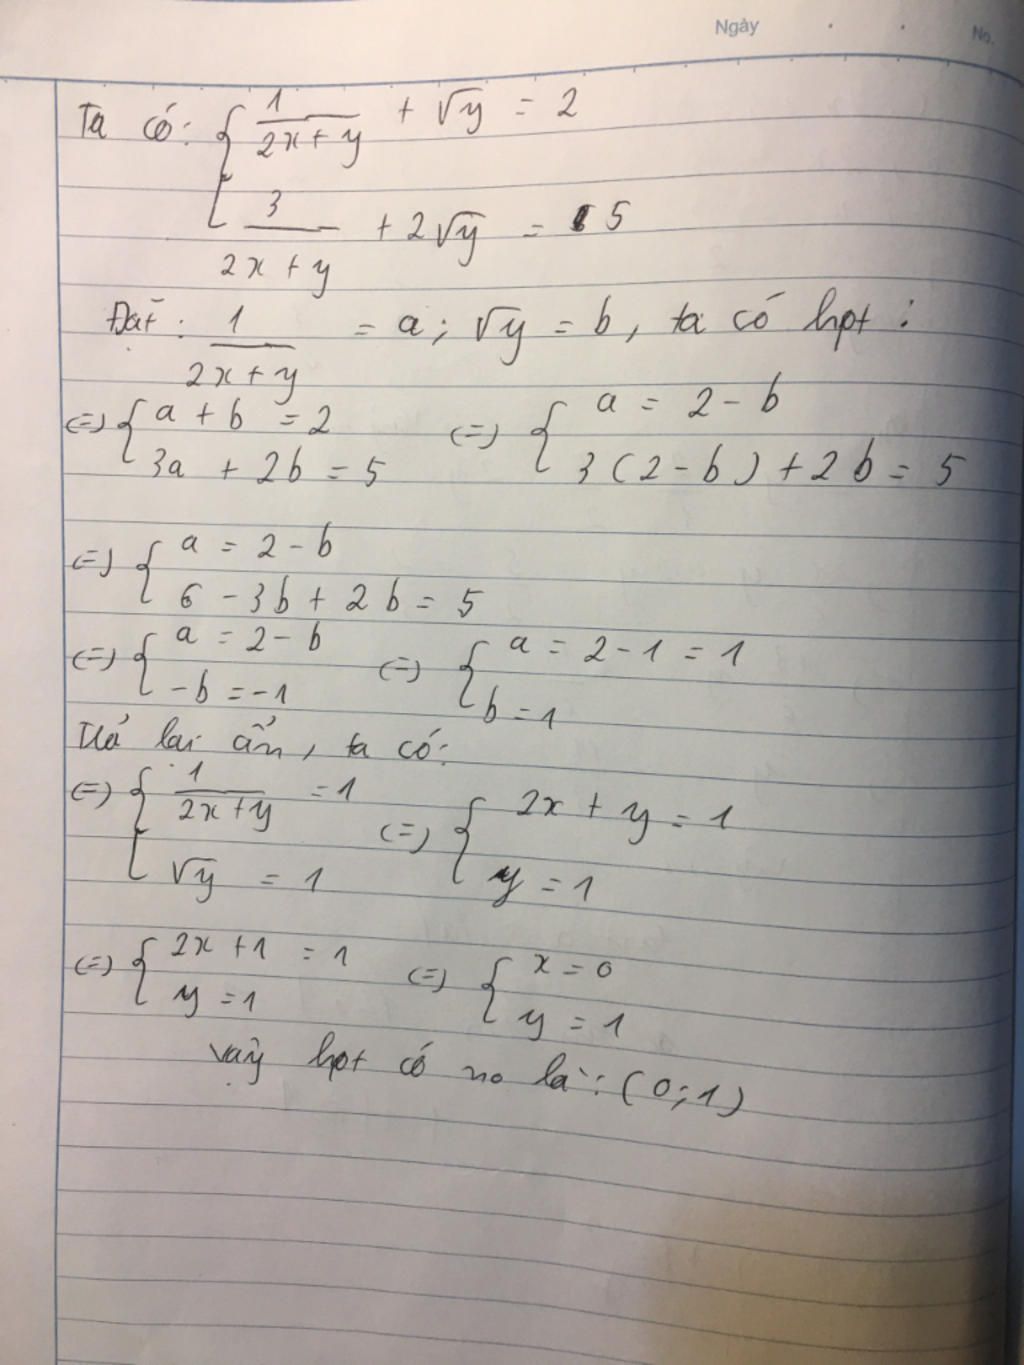 Ngày No.
Ta có: { 1/(2x+y) + √y = 2
{ 3/(2x+y) + 2√y = 5
Đặt: 1/(2x+y) = a; √y = b, ta có hpt:
(=) { a + b = 2 (=) { a = 2 - b
{ 3a + 2b = 5 { 3(2-b) + 2b = 5
(=) { a = 2 - b
{ 6 - 3b + 2b = 5
(=) { a = 2 - b (=) { a = 2 - 1 = 1
{ -b = -1 { b = 1
Trả lại ẩn, ta có:
(=) { 1/(2x+y) = 1 (=) { 2x + y = 1
{ √y = 1 { y = 1
(=) { 2x + 1 = 1 (=) { x = 0
{ y = 1 { y = 1
vậy hpt có no là: (0;1)